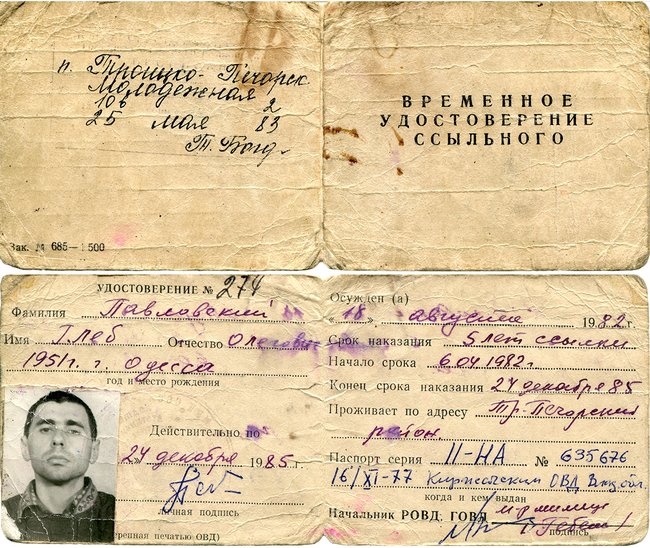 п. Троицко-Печорск
Молодежная
10б 2
25 мая 83
Зак. № 685—1500
ВРЕМЕННОЕ
УДОСТОВЕРЕНИЕ
ССЫЛЬНОГО
УДОСТОВЕРЕНИЕ № 274
Фамилия Павловский
Имя Глеб Отчество Олегович
1951г. г. Одесса
год и место рождения
Действительно по
24 декабря 1985 г.
личная подпись
ренная печатью ОВД)
Осужден (а)
„18" августа 1982 г.
Срок наказания 5 лет ссылки
Начало срока 6.04.1982.
Конец срока наказания 24 декабря 85
Проживает по адресу Тр. Печорский
район.
Паспорт серия II-НА № 635676
16/XI-77 Киржачским ОВД Влад. обл.
когда и кем выдан
Начальник РОВД, ГОВД
подпись